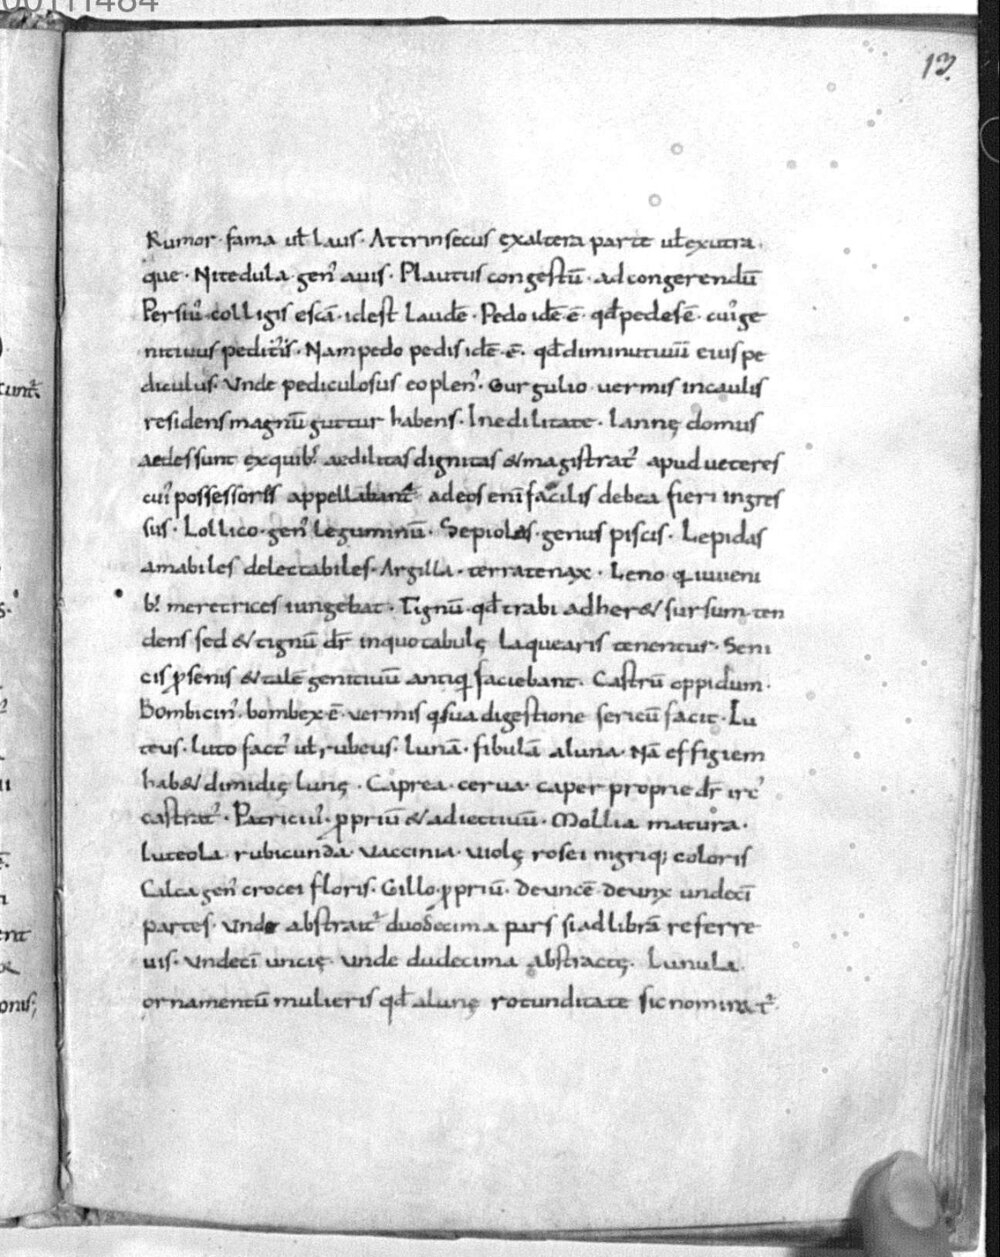 00111484
13.
Rumor· fama ul̄ laus· Attrinsecus exaltera parte ul̄ exutra
que· Nitedula· gen' auis· Plautus congestū· ad congerendū
Persiu' colligis escā· idest laudē· Pedo idē ē· qđ pedesē· cui' ge
nitiuus peditis· Nam pedo pedis idē· ē· qđ diminutiuū eius pe
diculus· Vnde pediculosus eo plen'· Gurgulio uermis in caulis
residens magnū guttur habens· In edilitate· Iannę domus
aedes sunt ex quib' aedilitas dignitas & magistrat' apud ueteres
cui' possessores appellabant' ad eos enī facilis debea fieri ingres
sus· Lollico· gen' leguminū· Sepiolas· genus piscis· Lepidas
amabiles delectabiles· Argilla· terra tenax· Leno q iuueni
b' meretrices iungebat· Tignū· qđ trabi adher& sursum ten
dens sed & tignū dr̄ in quo tabulę laquearis tenentur· Seni
cis p senis & talē genitiuū antiq faciebant· Castrū oppidum·
Bombicin'· bombex· ē· uermis q sua digestione sericū facit· Lu
teus· luto fact' ul̄ rubeus· Lunā· fibulā a luna· Nā effigiem
hab& dimidię lunę· Caprea· cerua· caper proprie dr̄ irc'
castrat'· Patricul'· ppriū & adiectiuū· Mollia matura·
Luteola· rubicunda· Vaccinia· uiolę rosei nigriq; coloris
Calca gen' crocei floris· Gillo ppriū· Deuncē deunx undecī
partes· Vnde abstrait' duodecima pars si ad librā referre
uis· Vndecī uncię· unde dudecima abstractę· Lunula·
ornamentū mulieris qđ a lunę rotunditate sic nominat'·